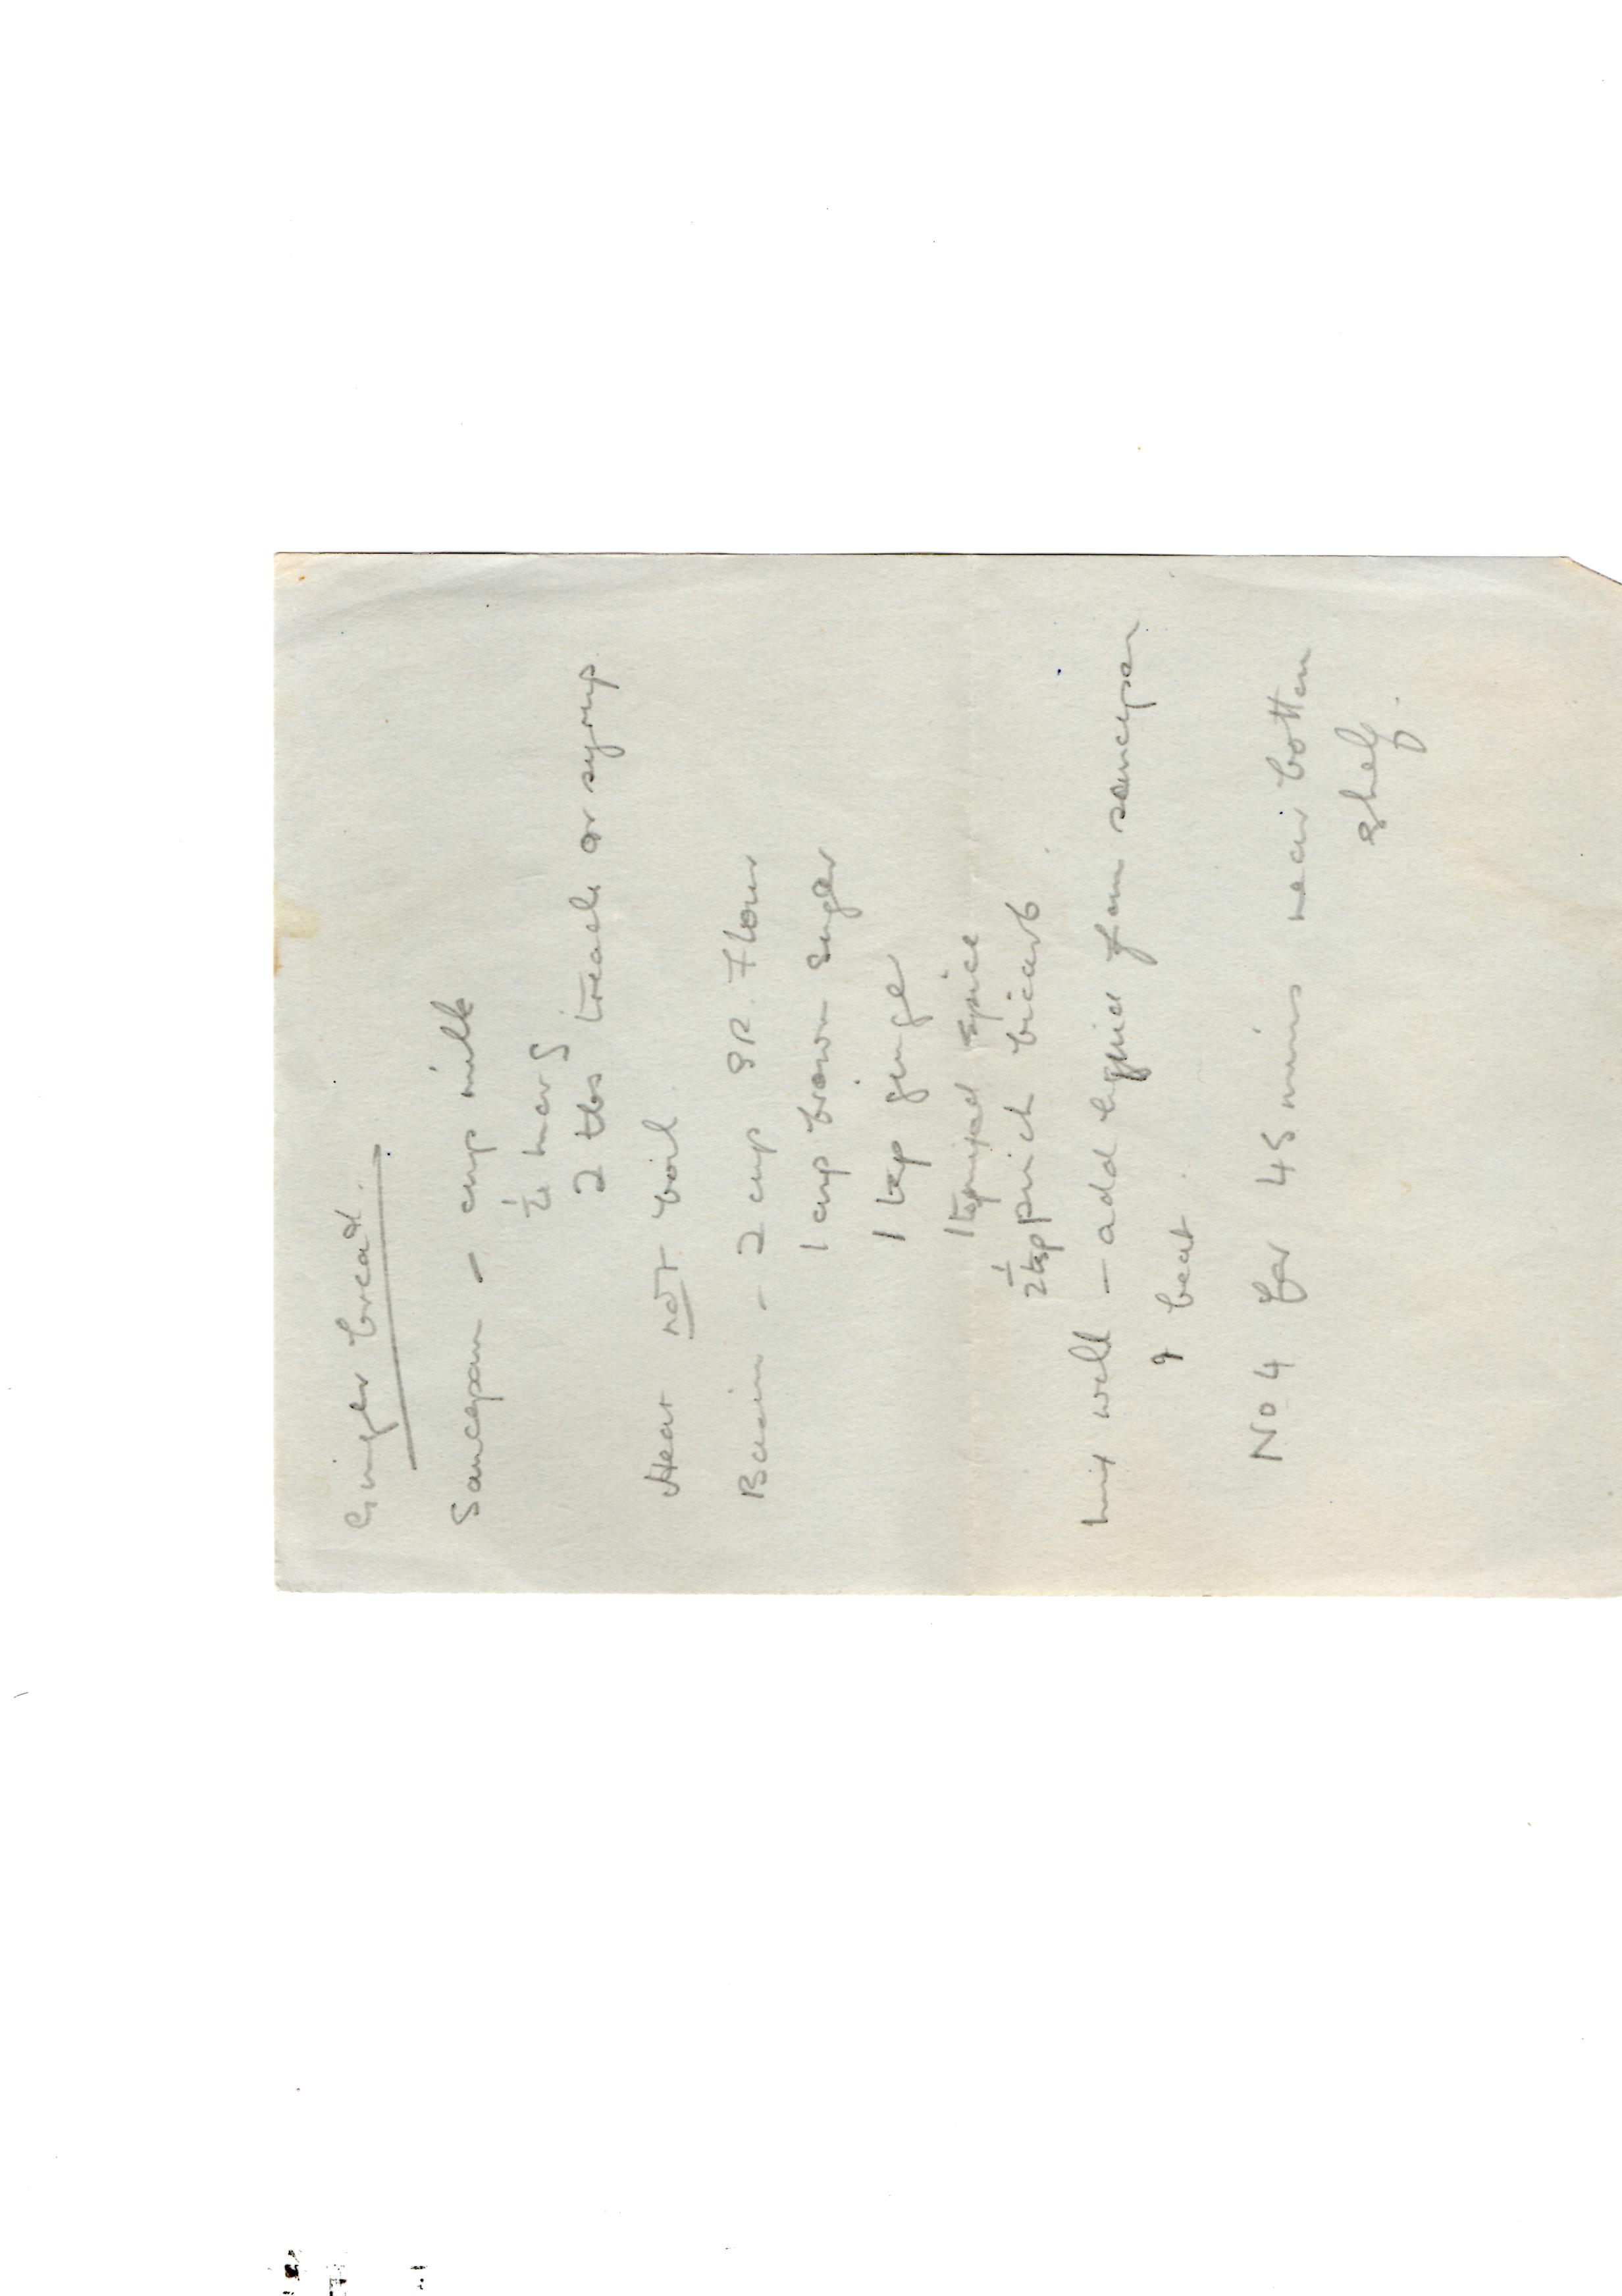 Ginger bread.
Saucepan - cup milk
½ marg
2 tbs treacle or syrup
Heat not boil
Basin - 2 cup SR. Flour
1 cup brown sugar
1 tsp ginger
1 tsp mixed spice
½ tsp pinch bicarb
mix well - add liquid from saucepan
& beat.
No 4 for 45 mins near bottom
shelf.